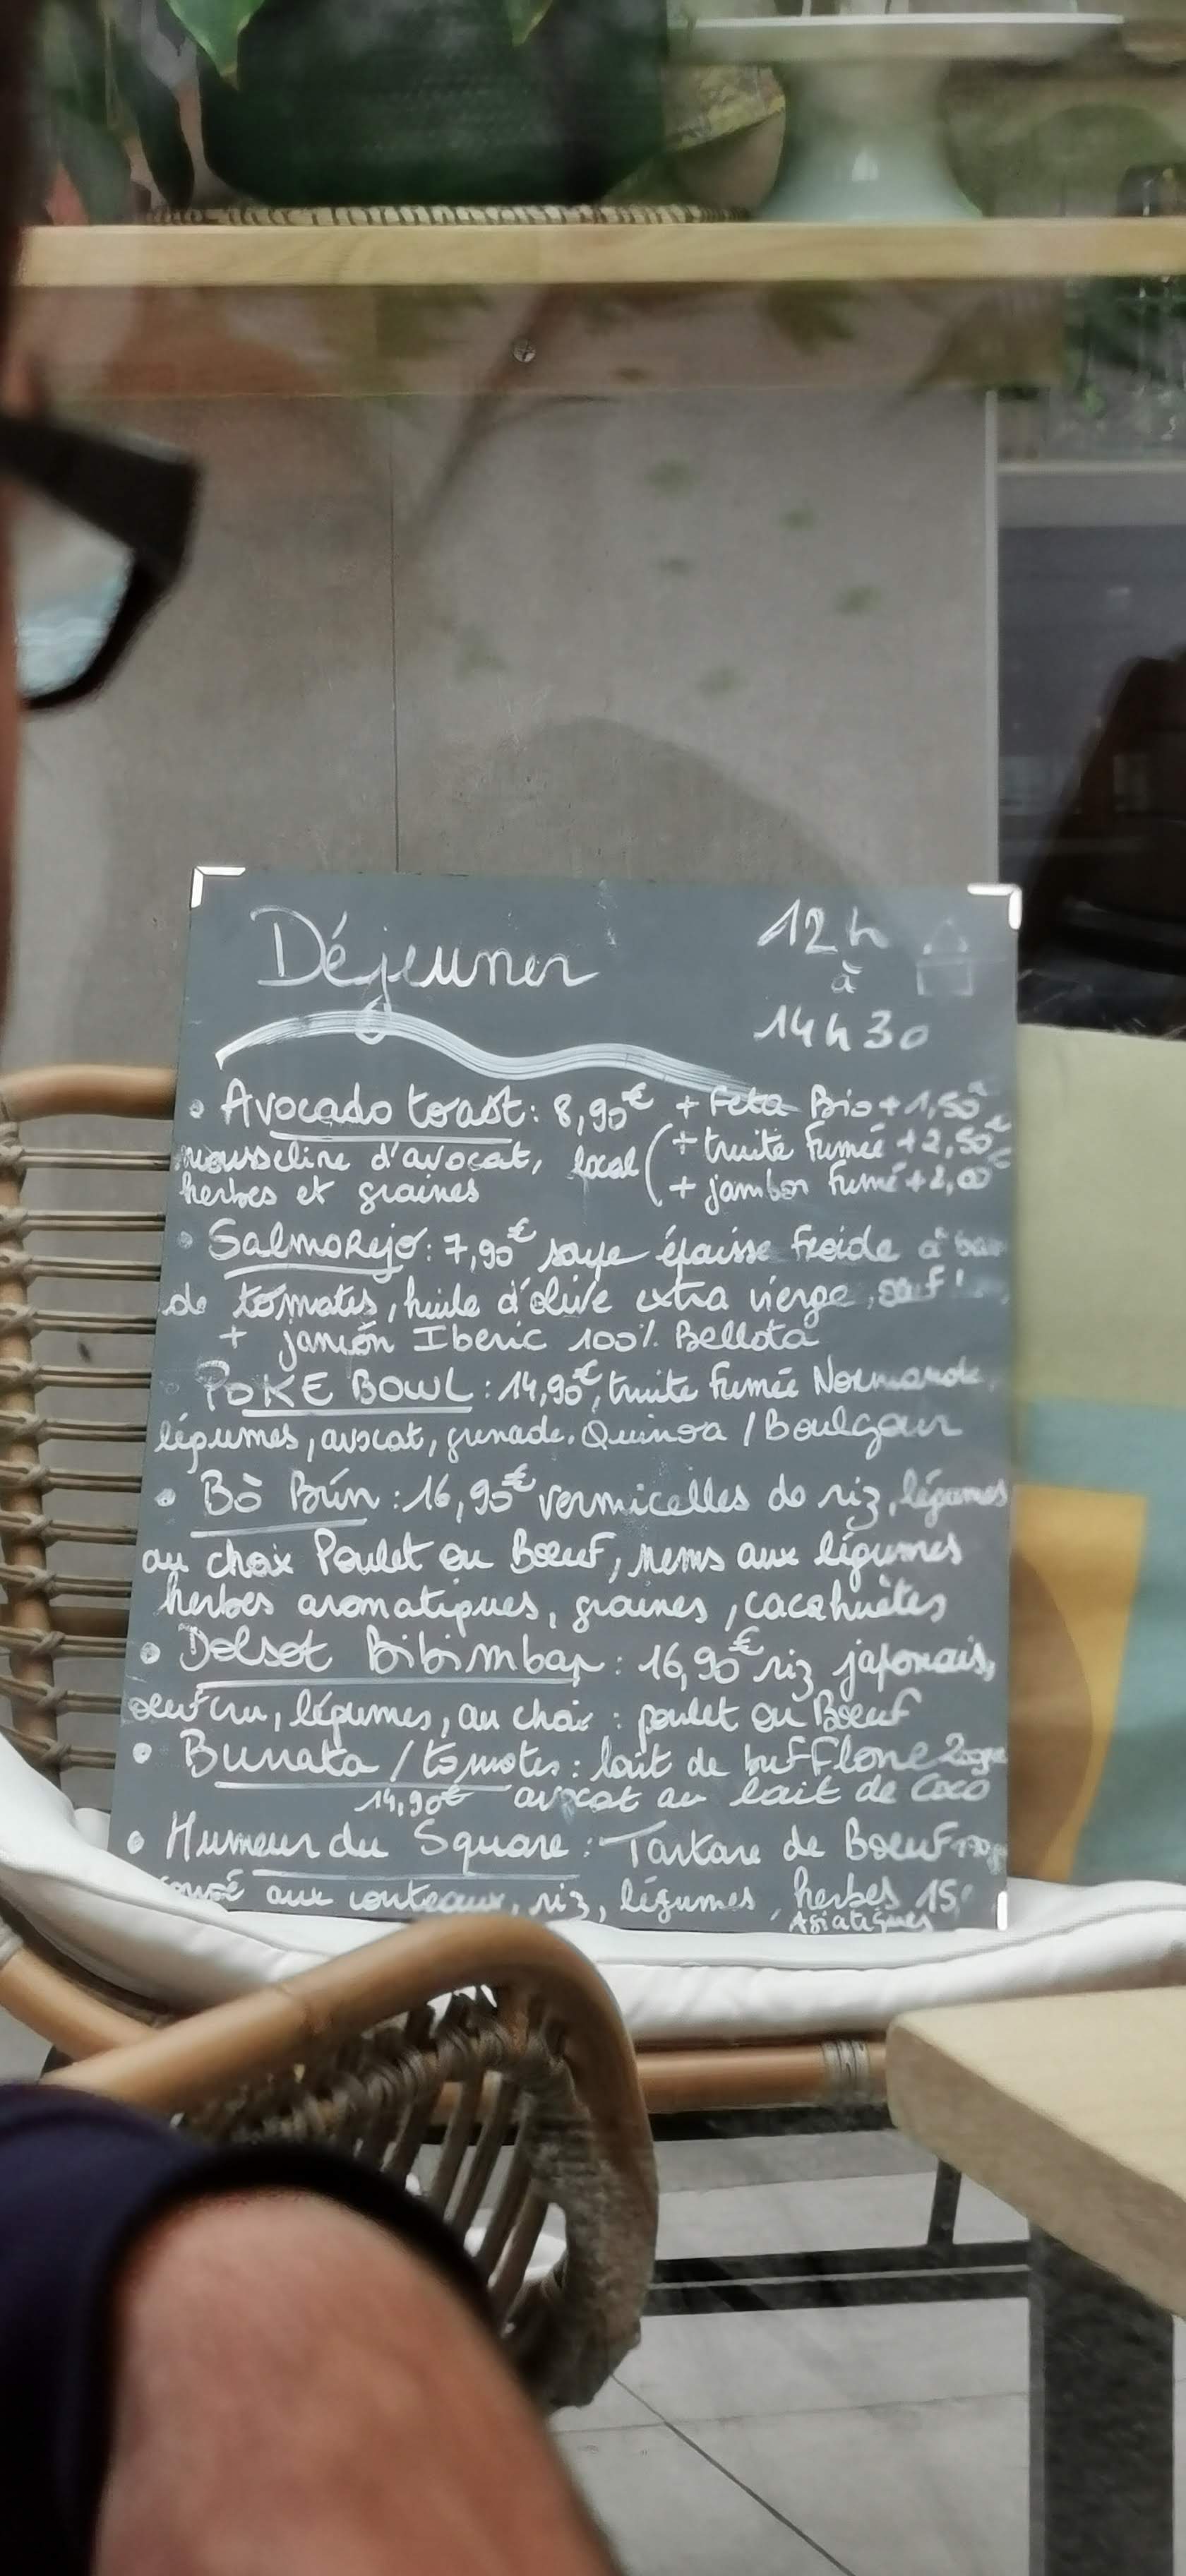 Déjeuner
12h
à
14h30
• Avocado toast: 8,90€ + Feta Bio + 1,50€
mousseline d'avocat, local ( + truite Fumée + 2,50€
herbes et graines ( + jambon Fumé + 2,00€
• Salmorejo: 7,90€ soupe épaisse Froide à
de tomates, huile d'olive extra vierge,
+ jamón Iberic 100% Bellota
POKE BOWL : 14,90€, truite Fumée Normande,
légumes, avocat, grenade, Quinoa / Boulgour
• Bò Bún : 16,90€ vermicelles de riz, légumes
au choix Poulet ou Boeuf, nems aux légumes
herbes aromatiques, graines, cacahuètes
• Dolsot Bibimbap : 16,90€ riz japonais,
oeuf cru, légumes, au choix : poulet ou Boeuf
• Burrata / tomates : lait de buFFlone
14,90€ avocat au lait de Coco
• Humeur du Square : Tartare de Boeuf
aux couteaux, riz, légumes, herbes 15,
Asiatiques